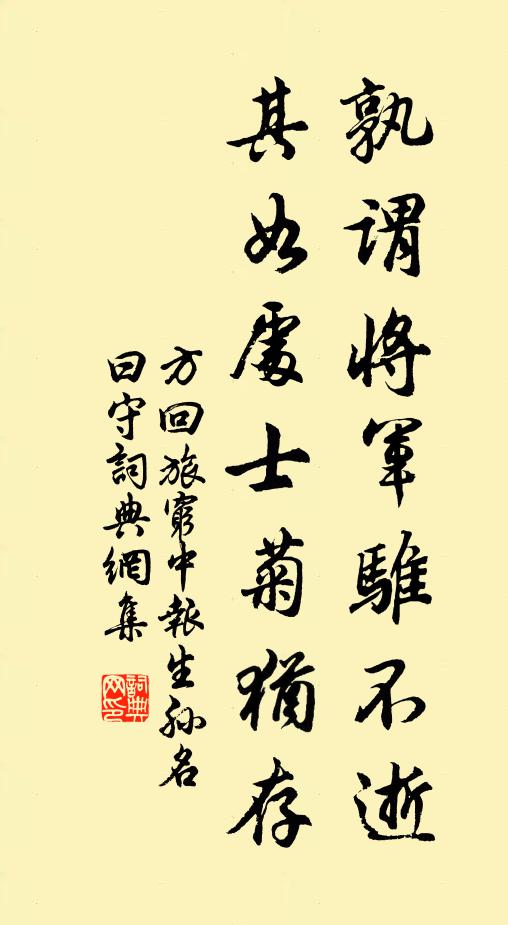 孰謂將軍騅不逝
其如處士菊猶存
方回旅窮中報生孫名
曰守詞典網集
詞典網印